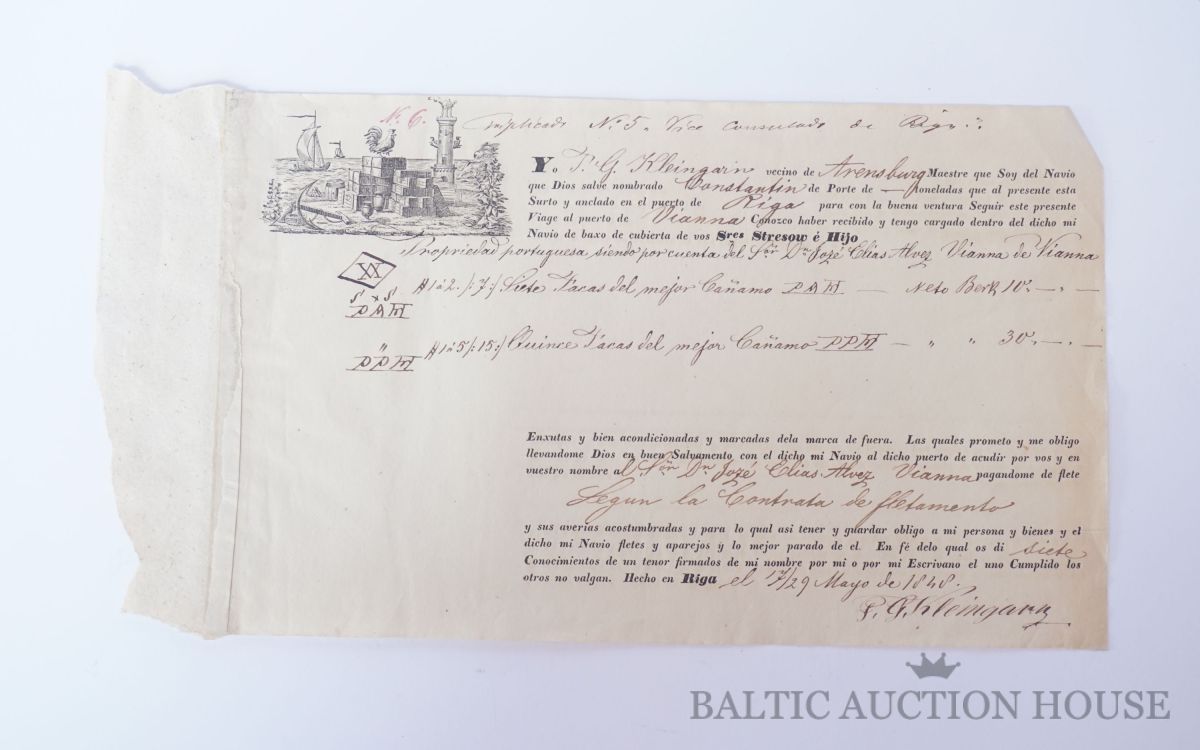 No. 6.
Triplicado No. 5. Vice Consulado de Riga.
Yo P. G. Kleingarn vecino de Arensburg Maestre que Soy del Navio
que Dios salve nombrado Constantin de Porte de — toneladas que al presente esta
Surto y anclado en el puerto de Riga para con la buena ventura Seguir este presente
Viage al puerto de Vianna Conozco haber recibido y tengo cargado dentro del dicho mi
Navio de baxo de cubierta de vos Sres Stresow é Hijo
Propriedad portuguesa siendo por cuenta del Sor Dn Jozé Elias Alvez Vianna de Vianna
XX
# 1 a 2. /:7:/ Siete Pacas del mejor Cañamo PAH — Neto Berk 10. — . —
PAH
# 1 a 5 /:15:/ Quince Pacas del mejor Cañamo PPH — " " 30. — . —
PPH
Enxutas y bien acondicionadas y marcadas dela marca de fuera. Las quales prometo y me obligo
llevandome Dios en buen Salvamento con el dicho mi Navio al dicho puerto de acudir por vos y en
vuestro nombre al Sor Dn Jozé Elias Alvez Vianna pagandome de flete
Segun la Contrata de fletamento
y sus averias acostumbradas y para lo qual asi tener y guardar obligo a mi persona y bienes y el
dicho mi Navio fletes y aparejos y lo mejor parado de el. En fé delo qual os di siete
Conocimientos de un tenor firmados de mi nombre por mi o por mi Escrivano el uno Cumplido los
otros no valgan. Hecho en Riga el 17/29 Mayo de 1848.
P. G. Kleingarn
BALTIC AUCTION HOUSE